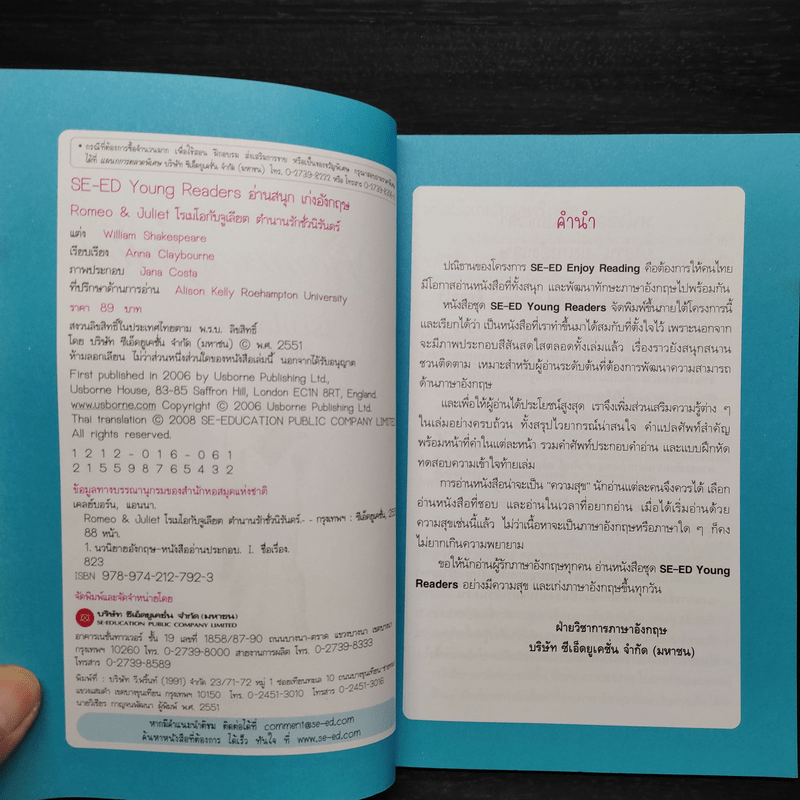 • กรณีที่ต้องการซื้อจำนวนมาก เพื่อใช้สอน ฝึกอบรม ส่งเสริมการขาย หรือเป็นของขวัญพิเศษ กรุณาสอบถาม
ได้ที่ แผนกการตลาดพิเศษ บริษัท ซีเอ็ดยูเคชั่น จำกัด (มหาชน) โทร. 0-2739-8222 หรือ โทรสาร
SE-ED Young Readers อ่านสนุก เก่งอังกฤษ
Romeo & Juliet โรเมโอกับจูเลียต ตำนานรักชั่วนิรันดร์
แต่ง William Shakespeare
เรียบเรียง Anna Claybourne
ภาพประกอบ Jana Costa
ที่ปรึกษาด้านการอ่าน Alison Kelly Roehampton University
ราคา 89 บาท
สงวนลิขสิทธิ์ในประเทศไทยตาม พ.ร.บ. ลิขสิทธิ์
โดย บริษัท ซีเอ็ดยูเคชั่น จำกัด (มหาชน) © พ.ศ. 2551
ห้ามลอกเลียน ไม่ว่าส่วนหนึ่งส่วนใดของหนังสือเล่มนี้ นอกจากได้รับอนุญาต
First published in 2006 by Usborne Publishing Ltd.,
Usborne House, 83-85 Saffron Hill, London EC1N 8RT, England.
www.usborne.com Copyright © 2006 Usborne Publishing Ltd.
Thai translation © 2008 SE-EDUCATION PUBLIC COMPANY LIMITED
All rights reserved.
1 2 1 2 - 0 1 6 - 0 6 1
2 1 5 5 9 8 7 6 5 4 3 2
ข้อมูลทางบรรณานุกรมของสำนักหอสมุดแห่งชาติ
เคลย์บอร์น, แอนนา.
Romeo & Juliet โรเมโอกับจูเลียต ตำนานรักชั่วนิรันดร์.- - กรุงเทพฯ : ซีเอ็ดยูเคชั่น,
88 หน้า.
1. นวนิยายอังกฤษ-หนังสืออ่านประกอบ. I. ชื่อเรื่อง.
823
ISBN 978-974-212-792-3
จัดพิมพ์และจัดจำหน่ายโดย
บริษัท ซีเอ็ดยูเคชั่น จำกัด (มหาชน)
SE-EDUCATION PUBLIC COMPANY LIMITED
อาคารเนชั่นทาวเวอร์ ชั้น 19 เลขที่ 1858/87-90 ถนนบางนา-ตราด แขวงบางนา เขตบางนา
กรุงเทพฯ 10260 โทร. 0-2739-8000 สายงานการผลิต โทร. 0-2739-8333
โทรสาร 0-2739-8589
พิมพ์ที่ : บริษัท วี.พริ้นท์ (1991) จำกัด 23/71-72 หมู่ 1 ซอยเทียนทะเล 10 ถนนบางขุนเทียน-ชายทะเล
แขวงแสมดำ เขตบางขุนเทียน กรุงเทพฯ 10150 โทร. 0-2451-3010 โทรสาร 0-2451-3016
นายวิเชียร กาญจนพัฒนา ผู้พิมพ์ พ.ศ. 2551
หากมีคำแนะนำติชม ติดต่อได้ที่ comment@se-ed.com
ค้นหาหนังสือที่ต้องการ ได้เร็ว ทันใจ ที่ www.se-ed.com
คำนำ
ปณิธานของโครงการ SE-ED Enjoy Reading คือต้องการให้คนไทย
มีโอกาสอ่านหนังสือที่ทั้งสนุก และพัฒนาทักษะภาษาอังกฤษไปพร้อมกัน
หนังสือชุด SE-ED Young Readers จัดพิมพ์ขึ้นภายใต้โครงการนี้
และเรียกได้ว่า เป็นหนังสือที่เราทำขึ้นมาได้สมกับที่ตั้งใจไว้ เพราะนอกจาก
จะมีภาพประกอบสีสันสดใสตลอดทั้งเล่มแล้ว เรื่องราวยังสนุกสนาน
ชวนติดตาม เหมาะสำหรับผู้อ่านระดับต้นที่ต้องการพัฒนาความสามารถ
ด้านภาษาอังกฤษ
และเพื่อให้ผู้อ่านได้ประโยชน์สูงสุด เราจึงเพิ่มส่วนเสริมความรู้ต่าง ๆ
ในเล่มอย่างครบถ้วน ทั้งสรุปไวยากรณ์น่าสนใจ คำแปลศัพท์สำคัญ
พร้อมหน้าที่คำในแต่ละหน้า รวมคำศัพท์ประกอบคำอ่าน และแบบฝึกหัด
ทดสอบความเข้าใจท้ายเล่ม
การอ่านหนังสือน่าจะเป็น "ความสุข" นักอ่านแต่ละคนจึงควรได้ เลือก
อ่านหนังสือที่ชอบ และอ่านในเวลาที่อยากอ่าน เมื่อได้เริ่มอ่านด้วย
ความสุขเช่นนี้แล้ว ไม่ว่าเนื้อหาจะเป็นภาษาอังกฤษหรือภาษาใด ๆ ก็คง
ไม่ยากเกินความพยายาม
ขอให้นักอ่านผู้รักภาษาอังกฤษทุกคน อ่านหนังสือชุด SE-ED Young
Readers อย่างมีความสุข และเก่งภาษาอังกฤษขึ้นทุกวัน
ฝ่ายวิชาการภาษาอังกฤษ
บริษัท ซีเอ็ดยูเคชั่น จำกัด (มหาชน)